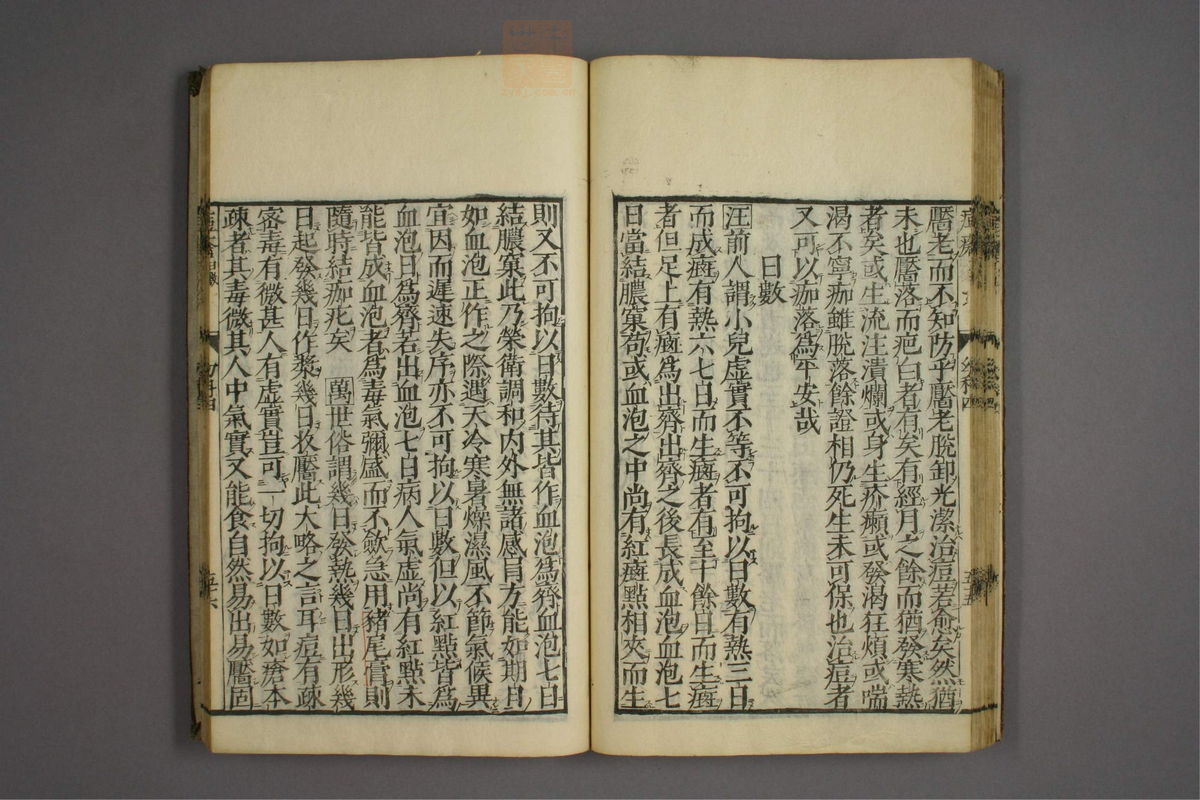 靨老而不知防乎靨老脫卸光潔治痘若愈矣然猶
未也靨落而疤白者有矣有經月之餘而猶發寒熱
者矣或生流注潰爛或身生疥癩或發渴狂煩或喘
渴不寧痂雖脫落餘證相仍死生未可保也治痘者
又可以痂落爲平安哉
日數
汪前人謂小兒虛實不等不可拘以日數有熱三日
而成癍有熱六七日而生癍者有至十餘日而生癍
者但足上有癍爲出齊出齊之後長成血泡血泡七
日當結膿窠苟或血泡之中尚有紅癍點相夾而生
則又不可拘以日數待其皆作血泡爲齊血泡七日
結膿窠此乃榮衛調和內外無諸感冒方能如期日
如血泡正作之際遇天冷寒暑燥濕風不節氣候異
宜因而遲速失序亦不可拘以日數但以紅點皆爲
血泡日爲齊若出血泡七日病人氣虛尚有紅點未
能皆成血泡者爲毒氣彌盛而不斂急用豬尾膏則
隨時結痂疕矣 萬世俗謂幾日發熱幾日出形幾
日起發幾日作漿幾日收靨此大略之言耳痘有疎
密毒有微甚人有虛實豈可一切拘以日數如瘡本
疎者其毒微其人中氣實又能食自然易出易靨固